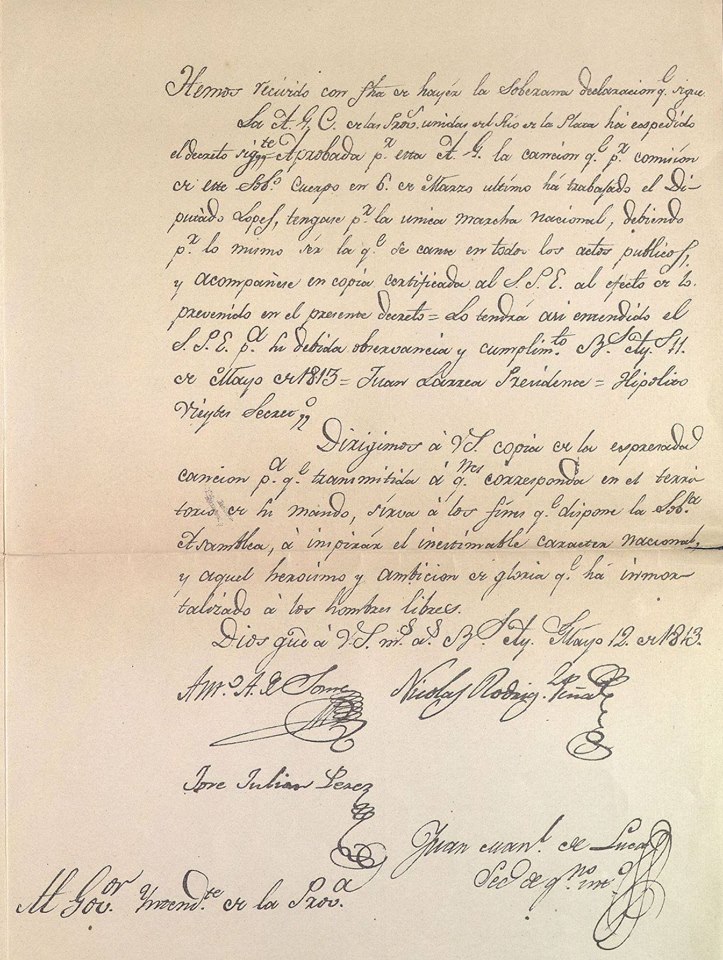 Hemos recivido con fha de hayér la Soberana declaracion q.e sigue
La A. G. C. de las Prov.s unidas del Rio de la Plata há espedido
el decreto sig.te Aprobada p.r esta A. G. la cancion q.e p.r comision
de este Sob.o Cuerpo en 6. de Marzo ultimo há trabajado el Di-
putado Lopes, tengase p.r la unica marcha nacional, debiendo
p.r lo mismo sér la q.e se cante en todos los actos publicos,
y acompañese en copia certificada al S. P. E. al efecto de lo
prevenido en el presente decreto = Lo tendrá asi entendido el
S. P. E. p.a su debida observancia y cumplim.to B.s Ay.s 11.
de Mayo de 1813 = Juan Larrea Presidente = Hipolito
Vieytes Secret.o
Dirigimos á V.S. copia de la espresada
cancion p.a q.e transmitida á q.nes corresponda en el terri-
torio de su mando, sirva á los fines q.e dispone la Sob.a
Asamblea, á inspirár el inestimable caractér nacional,
y aquel heroismo y ambicion de gloria q.e há inmor-
talizado á los hombres libres.
Dios gûe á V.S. m.s a.s B.s Ay. Mayo 12. de 1813.
Nicolas Rodrig.z Peña
Jose Julian Perez
Juan Man.l de Luca
Sec.o de g.no int.o
Al Gov.or Yntend.te de la Prov.a